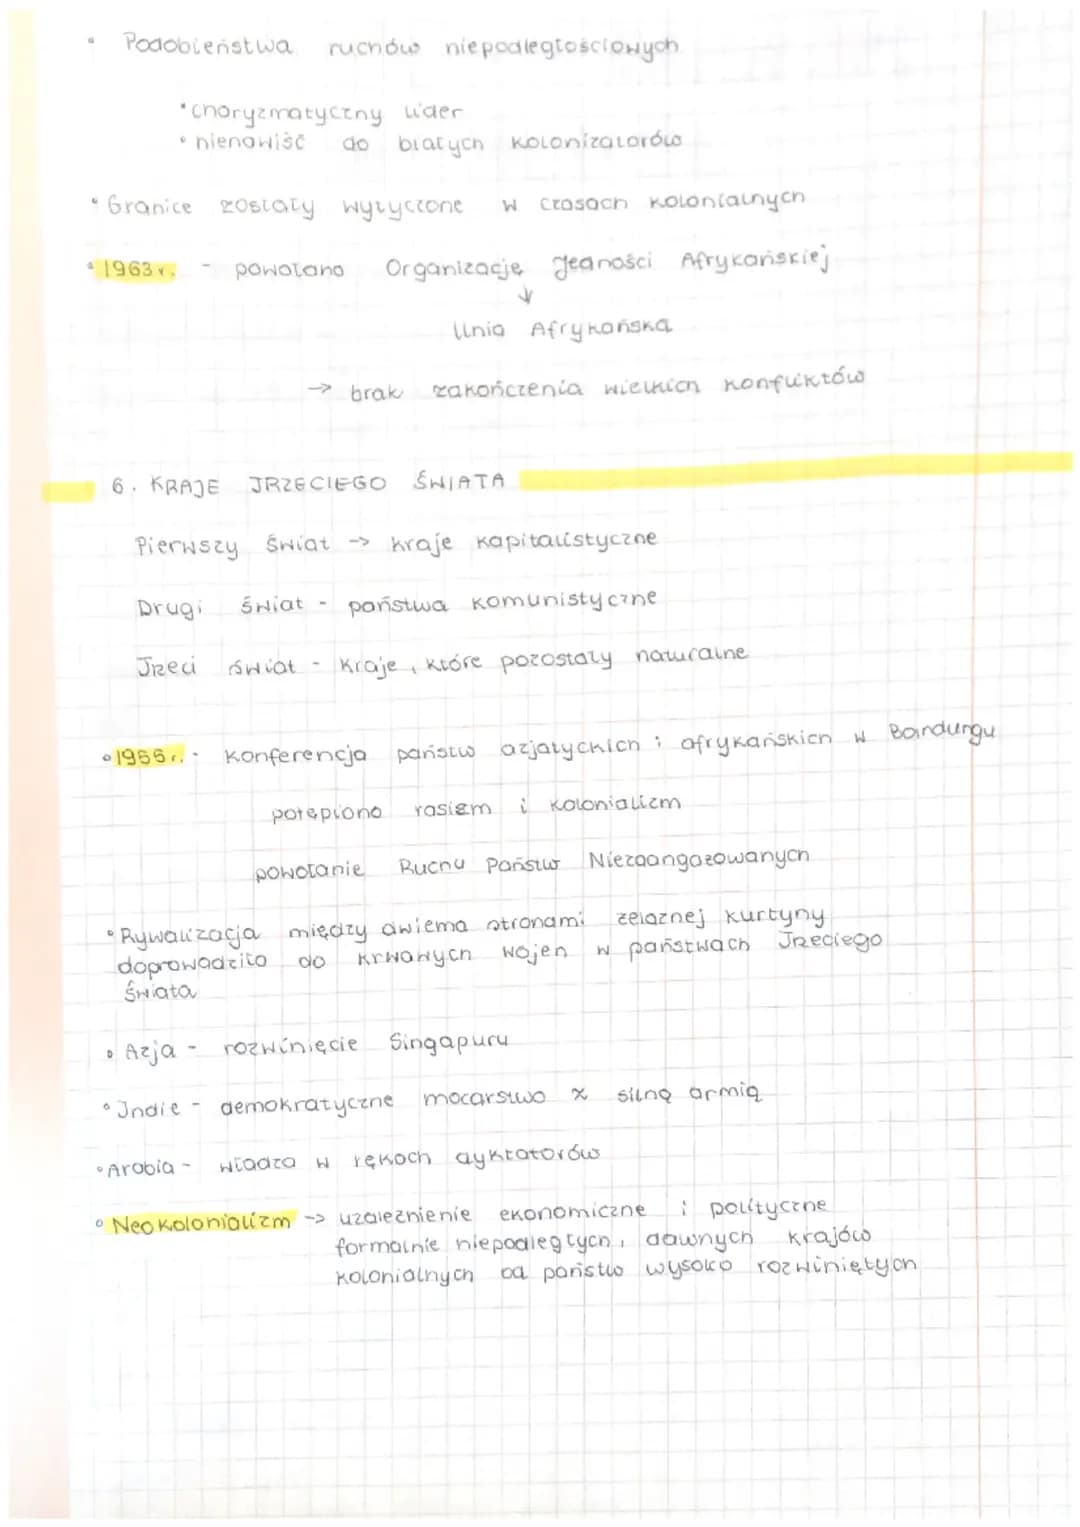 • Podobieństwa ruchów niepodległościowych
• charyzmatyczny lider
• nienawiść do białych kolonizatorów
• Granice zostały wytyczone w czasach kolonialnych
• 1963 r. - powołano Organizację Jedności Afrykańskiej
↓
Unia Afrykańska
→ brak zakończenia wielkich konfliktów
6. KRAJE TRZECIEGO ŚWIATA
Pierwszy świat → kraje kapitalistyczne
Drugi świat - państwa komunistyczne
Trzeci świat - kraje, które pozostały naturalne
• 1955 r. - konferencja państw azjatyckich i afrykańskich w Bandungu
potępiono rasizm i kolonializm
powołanie Ruchu Państw Niezaangażowanych
• Rywalizacja między dwiema stronami żelaznej kurtyny
doprowadziło do krwawych wojen w państwach Trzeciego
Świata
• Azja - rozwinięcie Singapuru
• Indie - demokratyczne mocarstwo z silną armią
• Arabia - władza w rękach dyktatorów
• Neokolonializm → uzależnienie ekonomiczne i polityczne
formalnie niepodległych, dawnych krajów
kolonialnych od państw wysoko rozwiniętych